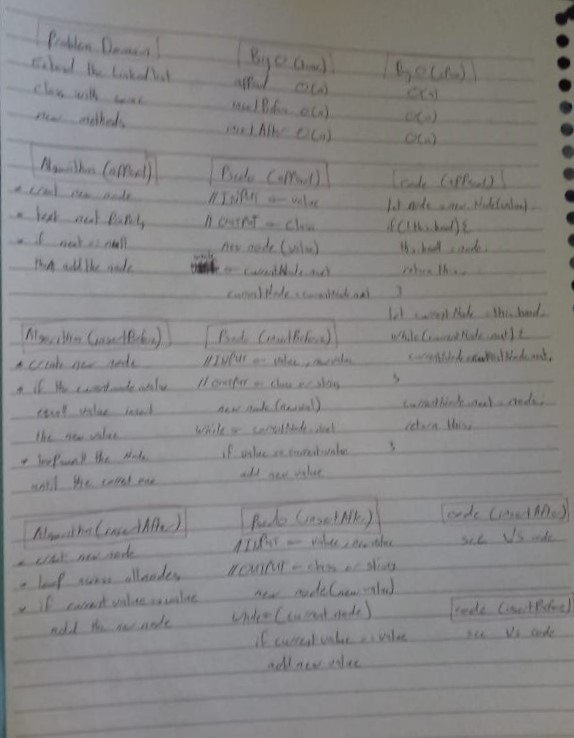 Problem Domain
Extend the Linked list
class with some
new methods
Big O (time)
append O(n)
insertBefore O(n)
insertAfter O(n)
Big O (space)
O(n)
O(n)
O(n)
Algorithm (append)
* creat new node
* test next
* if next = null
add the node
Psedo (append)
// INPUT <- value
// OUTPUT <- class
new node (value)
while <- currentNode.next
currentNode = currentNode.next
code (append)
let node = new Node(value).
if (!this.head) {
this.head = node.
return this.
}
let currentNode = this.head.
while (currentNode.next) {
currentNode = currentNode.next.
}
currentNode.next = node.
return this.
}
Algorithm (insertBefore)
* create new node
* if the current node value
equal value insert
the new value
* the Node
until the current one
Psedo (insertBefore)
// INPUT <- value, newvalue
// OUTPUT <- class or string
new node (newval)
while <- currentNode.next
if value = current value
add new value
Algorithm (insertAfter)
* creat new node
* loop across all nodes
* if current value = value
add the new node
Psedo (insertAfter)
// INPUT <- value, newvalue
// OUTPUT <- class or string
new node (new value)
while <- (current node)
if current value = value
add new value
code (insertAfter)
see VS code
code (insertBefore)
see VS code